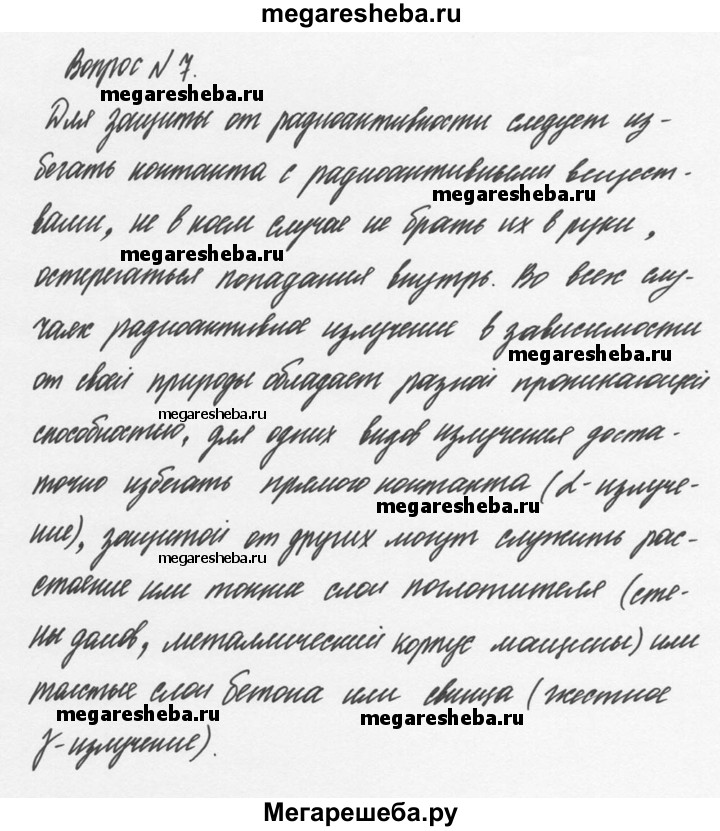 megaresheba.ru
Вопрос N 7.
megaresheba.ru
Для защиты от радиоактивности следует из-
бегать контакта с радиоактивными вещест-
megaresheba.ru
вами, не в коем случае не брать их в руки,
megaresheba.ru
остерегаться попадания внутрь. Во всех слу-
чаях радиоактивное излучение в зависимости
megaresheba.ru
от своей природы обладает разной проникающей
megaresheba.ru
способностью, для одних видов излучения доста-
точно избегать прямого контакта (α-излуче-
megaresheba.ru
ние), защитой от других могут служить рас-
megaresheba.ru
стояние или тонкие слои поглотителя (сте-
ны домов, металлический корпус машины) или
толстые слои бетона или свинца (жесткое
megaresheba.ru megaresheba.ru
γ-излучение).
Мегарешеба.ру